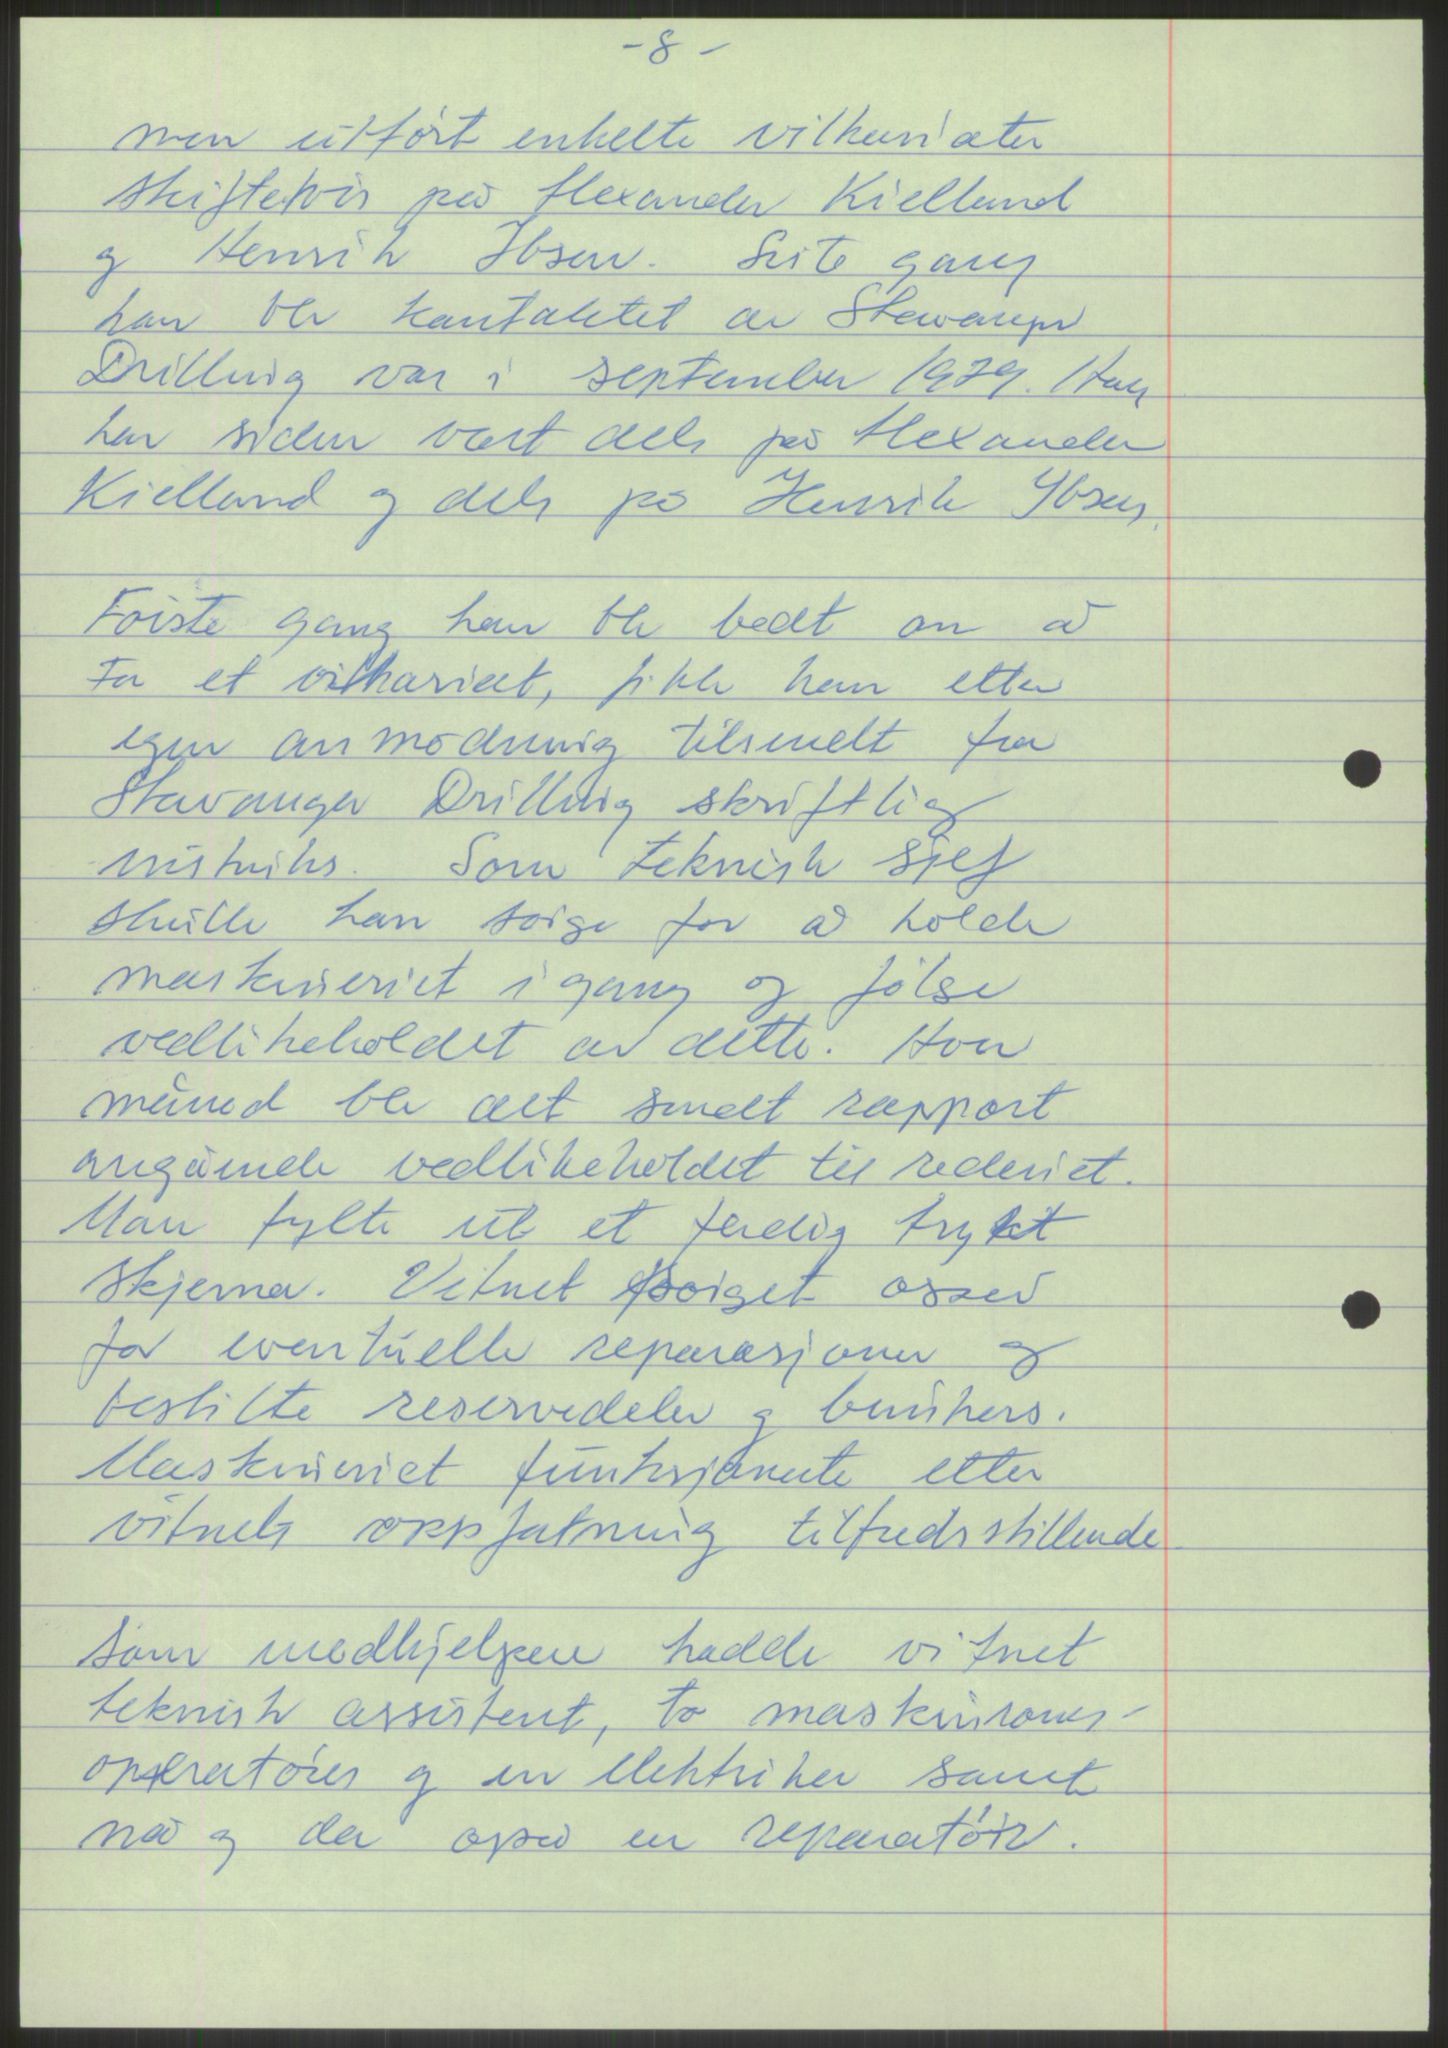 - 8 -
men utført enkelte vikariater
skiftetvis på Alexander Kielland
g Henrik Ibsen. Siste gang
han ble kontaktet av Stavanger
Drilling var i september 1979. Han
har siden vært dels på Alexander
Kielland g dels på Henrik Ibsen.
Første gang han ble bedt om å
ta et vikariat, fikk han etter
egen anmodning tilsendt fra
Stavanger Drilling skriftlig
instruks. Som teknisk sjef
skulle han sørge for å holde
maskineriet i gang og følge
vedlikeholdet av dette. Hver
måned ble det sendt rapport
angående vedlikeholdet til rederiet.
Man fylte ut et ferdig trykt
skjema. Vitnet sørget også
for eventuelle reparasjoner g
bestilte reservedeler g bunkers.
Maskineriet funksjonerte etter
vitnets oppfatning tilfredsstillende
Som medhjelpere hadde vitnet
teknisk assistent, to maskinroms-
operatører g en elektriker samt
nå g da også en reparatør.